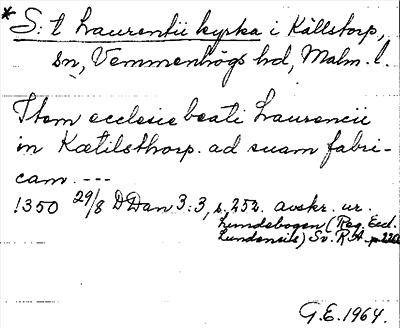 * S:t Laurentii kyrka i Källstorp,
sn, Vemmenhögs hd, Malm. l.
Item ecclesie beati Laurencii
in Kætilsthorp. ad suam fabri-
cam. ---
1350 29/8 DDan 3:3, s. 252. avskr. ur.
Lundebogen (Reg. Eccl.
Lundensis) Sv. R.A. p. 220
G.E. 1964.